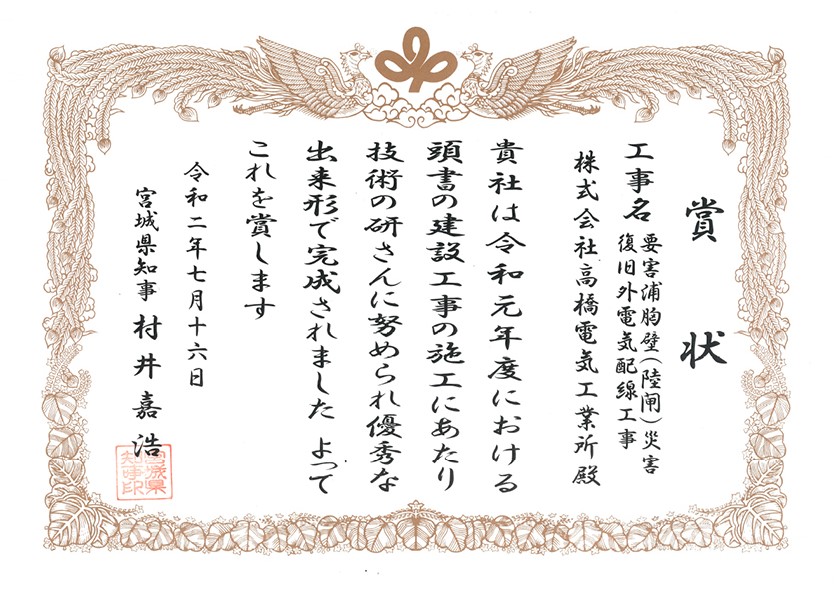 賞状
工事名 要害浦胸壁(陸閘)災害
復旧外電気配線工事
株式会社高橋電気工業所殿
貴社は令和元年度における
頭書の建設工事の施工にあたり
技術の研さんに努められ優秀な
出来形で完成されました よって
これを賞します
令和二年七月十六日
宮城県知事 村井嘉浩
宮城県知事印